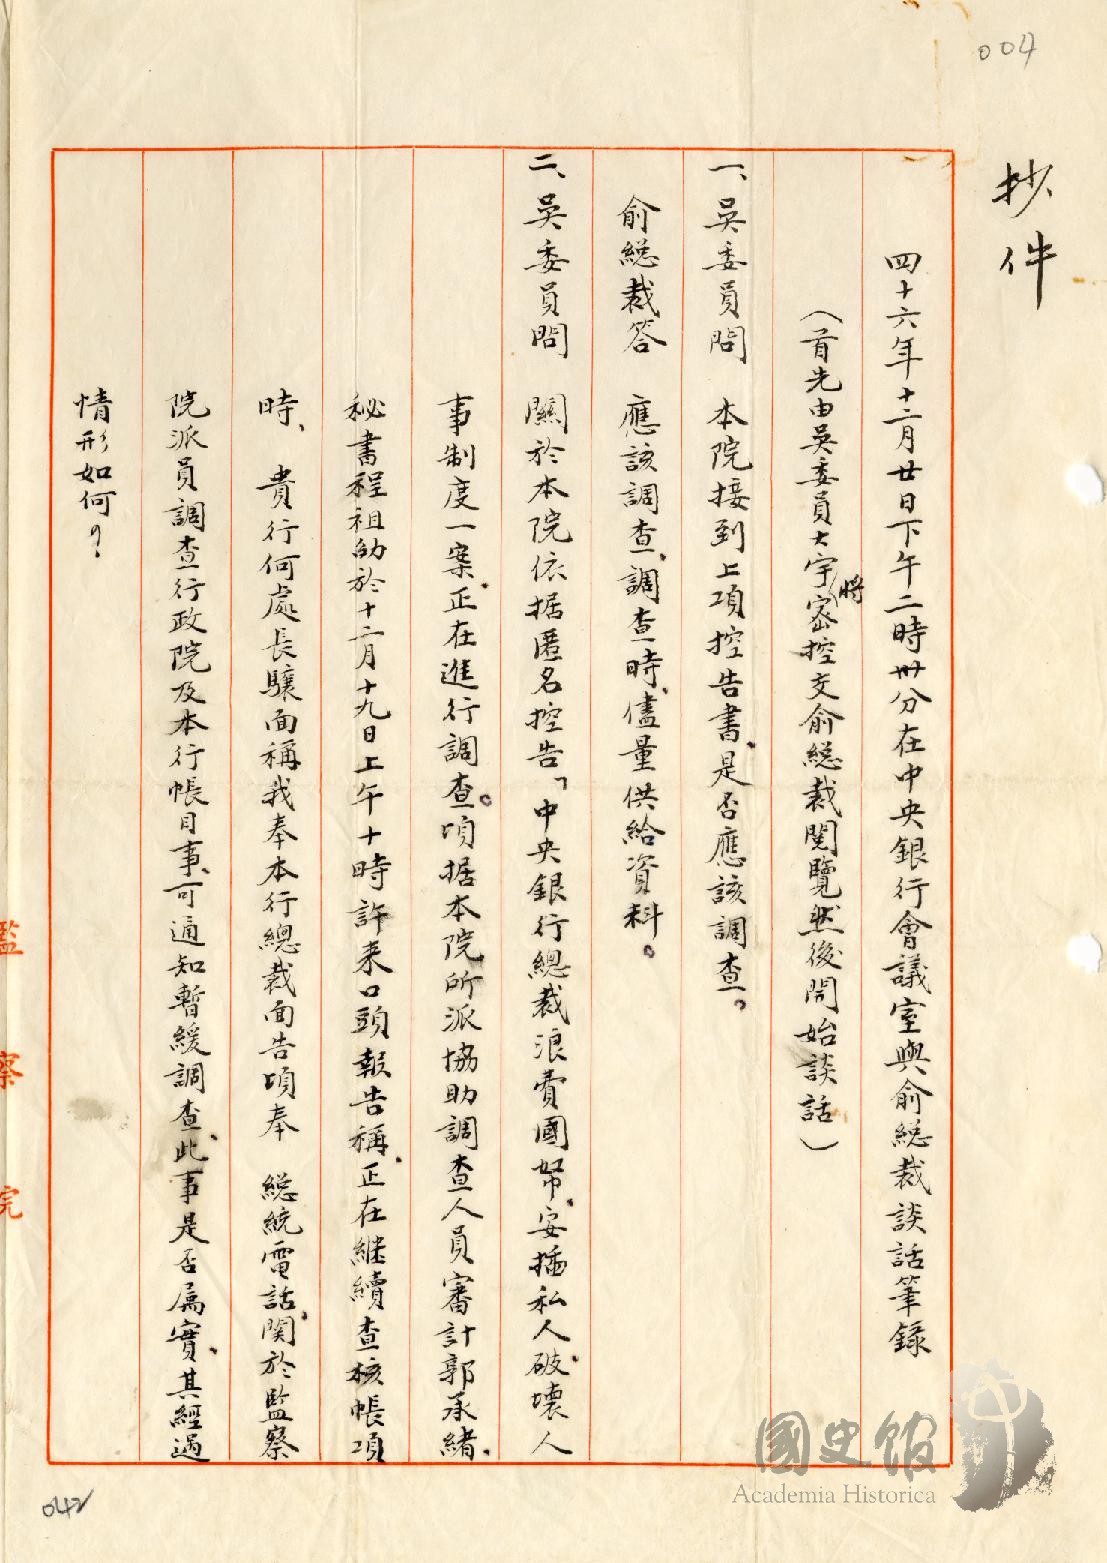 004
抄件
四十六年十二月廿日下午二時卅分在中央銀行會議室與俞総裁談話筆録
（首先由吳委員大宇將密控交俞総裁閱覽然後開始談話）
一、吳委員問　本院接到上項控告書，是否應該調查。
俞総裁答　應該調查，調查時，儘量供給資料。
二、吳委員問　關於本院依据匿名控告「中央銀行總裁浪費國帑，安插私人，破壞人
事制度一案，正在進行調查。頃据本院所派協助調查人員審計郭承緒，
秘書程祖劬於十二月十九日上午十時許来口頭報告稱，正在継續查核帳項
時，貴行何處長驤面稱我奉本行總裁面告頃奉　総統電話，関於監察
院派員調查行政院及本行帳目事，可通知暫緩調查，此事是否属實，其經過
情形如何？
監察院
042
國史館
Academia Historica